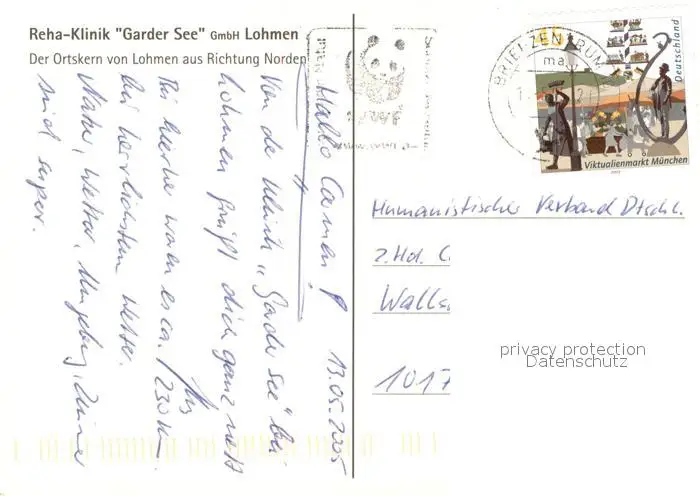 Reha-Klinik "Garder See" GmbH Lohmen
Der Ortskern von Lohmen aus Richtung Norden
Hallo Carmen! 13.05.2005
Von der Klinik „Garder See" bei
Lohmen grüßt dich ganz nett
Bis hierher waren es ca. 230 km
bei herrlichstem Wetter.
Natur, Wetter, Umgebung, Zimmer
sind super.
WWF
BRIEFZENTRUM
Deutschland
Viktualienmarkt München
2003
55
Humanistischer Verband Dtschl.
z.Hd. C
Walls
1017
privacy protection
Datenschutz